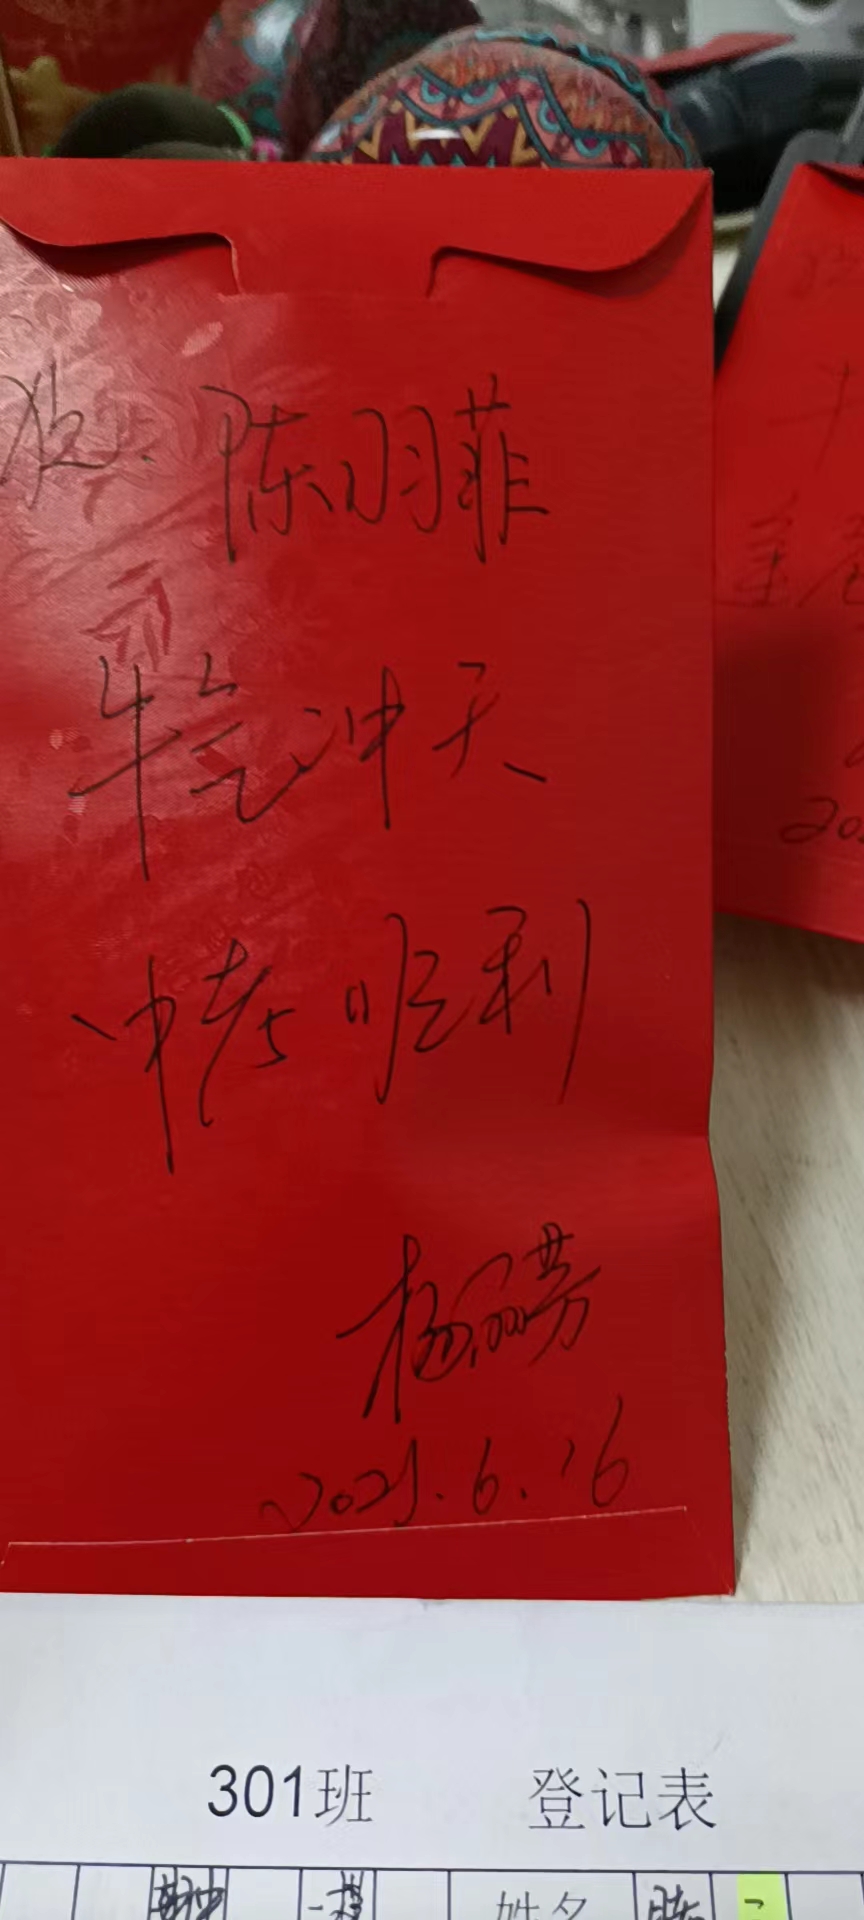 祝: 陈羽菲
牛气冲天
中考顺利
杨丽芳
2021.6.16
301班 登记表
姓名